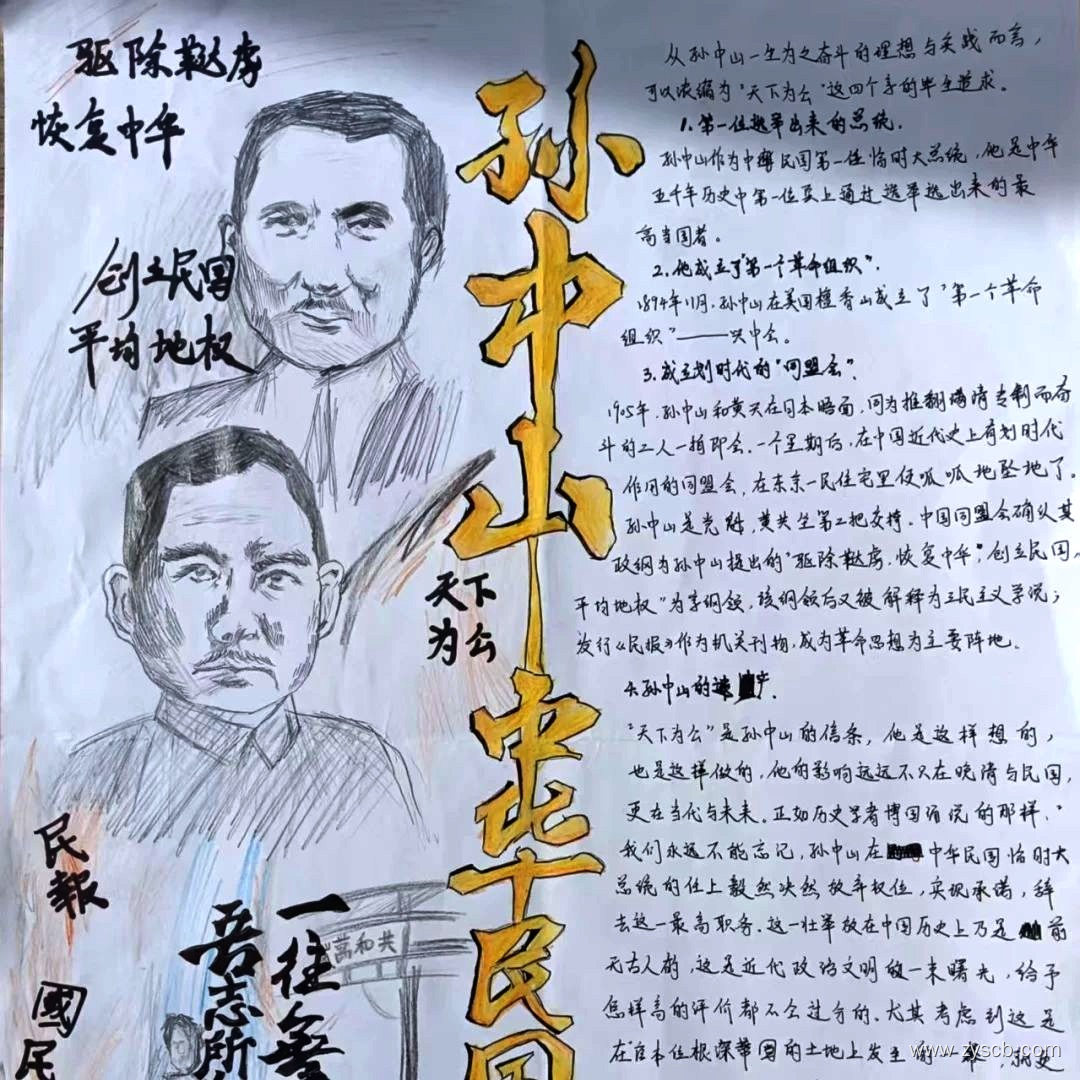 驱除鞑虏
恢复中华
创立民国
平均地权
孙中山
中华民国
天下
为公
民報
國民
一往無
吾志所
共和萬
从孙中山一生为之奋斗的理想与实战而言，
可以浓缩为"天下为公"这四个字的毕生追求。
1.第一位选举出来的总统.
孙中山作为中华民国第一任临时大总统，他是中华
五千年历史中第一位真上通过选举选出来的最
高当国者。
2.他成立了"第一个革命组织".
1894年11月，孙中山在美国檀香山成立了"第一个革命
组织"——兴中会。
3.成立划时代的"同盟会".
1905年，孙中山和黄兴在日本晤面，同为推翻满清专制而奋
斗的二人一拍即合.一个星期后，在中国近代史上有划时代
作用的同盟会，在东京一民住宅里便呱呱地坠地了.
孙中山是党魁，黄兴坐第二把交椅.中国同盟会确认其
政纲为孙中山提出的"驱除鞑虏，恢复中华"，创立民国，
平均地权"为字纲领，该纲领后又被解释为三民主义学说；
发行《民报》作为机关刊物，成为革命思想为主要阵地。
4.孙中山的遗产.
"天下为公"是孙中山的信条，他是这样想的，
也是这样做的，他的影响远远不只在晚清与民国，
更在当代与未来.正如历史学者傅国涌说的那样."
我们永远不能忘记，孙中山在中华民国临时大
总统的任上毅然决然放弃权位，实现承诺，辞
去这一最高职务.这一壮举放在中国历史上乃是前
无古人的，这是近代政治文明的一束曙光，给予
怎样高的评价都不会过分的.尤其考虑到这是
在官本位根深蒂固的土地上发生的
www.zyscb.com